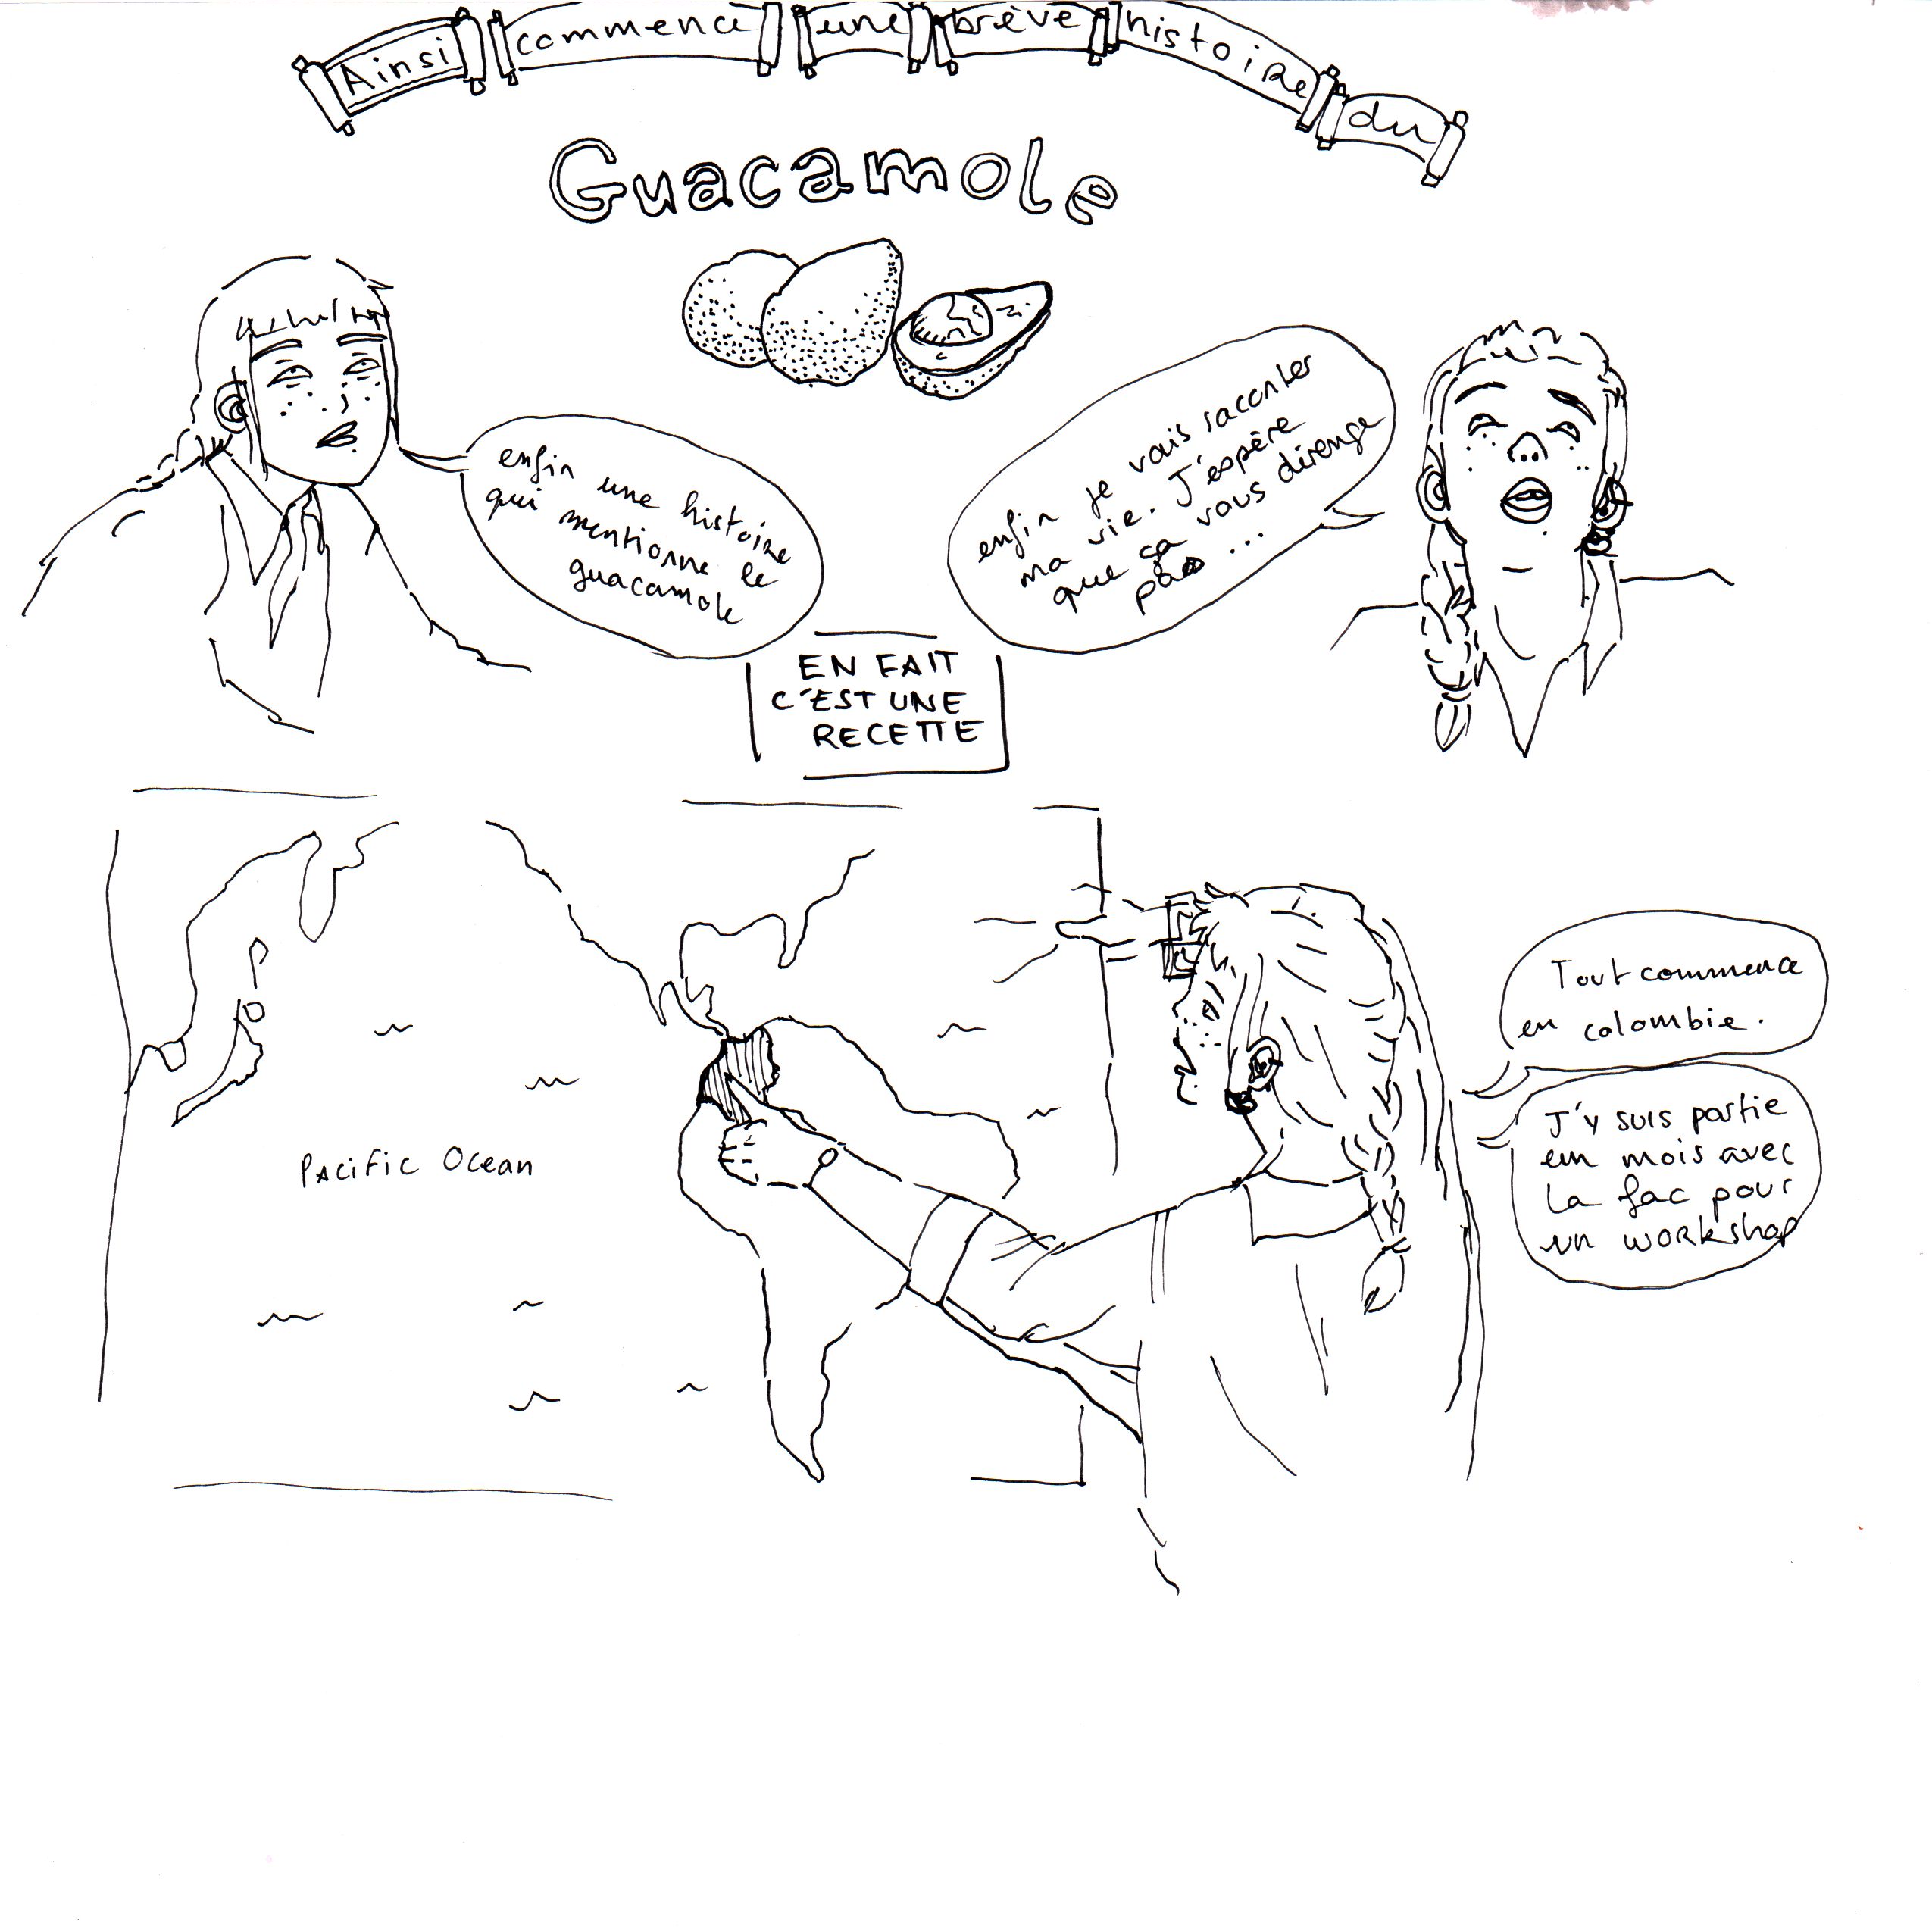 Ainsi commence une brève histoire du
Guacamole
enfin une histoire
qui mentionne le
guacamole
enfin je vais raconter
ma vie. J'espère
que ça vous dérange
pas...
EN FAIT
C'EST UNE
RECETTE
Tout commence
en colombie.
Pacific Ocean
J'y suis partie
un mois avec
la fac pour
un workshop